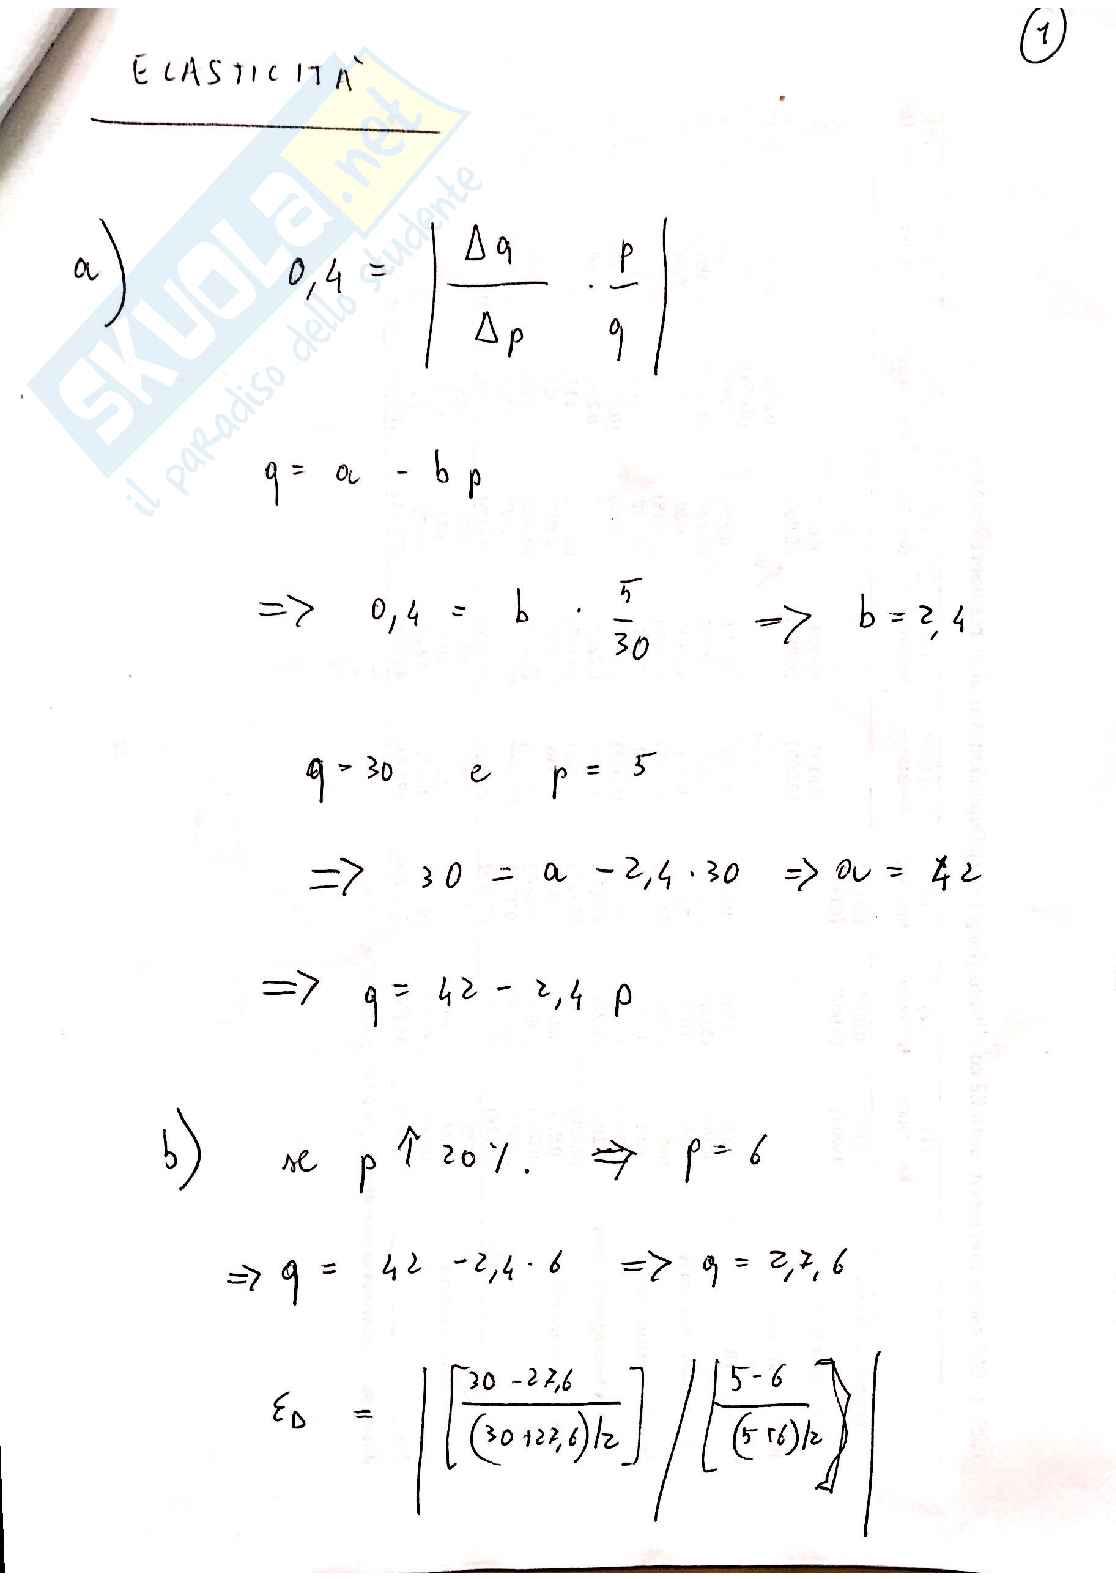 1
ELASTICITÀ
SKUOLA.net
il paradiso dello studente
a) 0,4 = | Δq / Δp · p / q |
q = a - b p
=> 0,4 = b · 5/30 => b = 2,4
q = 30 e p = 5
=> 30 = a - 2,4 · 30 => a = 42
=> q = 42 - 2,4 p
b) se p ↑ 20%. => p = 6
=> q = 42 - 2,4 · 6 => q = 2,7,6
ε_D = | [ 30 - 27,6 / (30+27,6)/2 ] / [ 5 - 6 / (5+6)/2 ] |